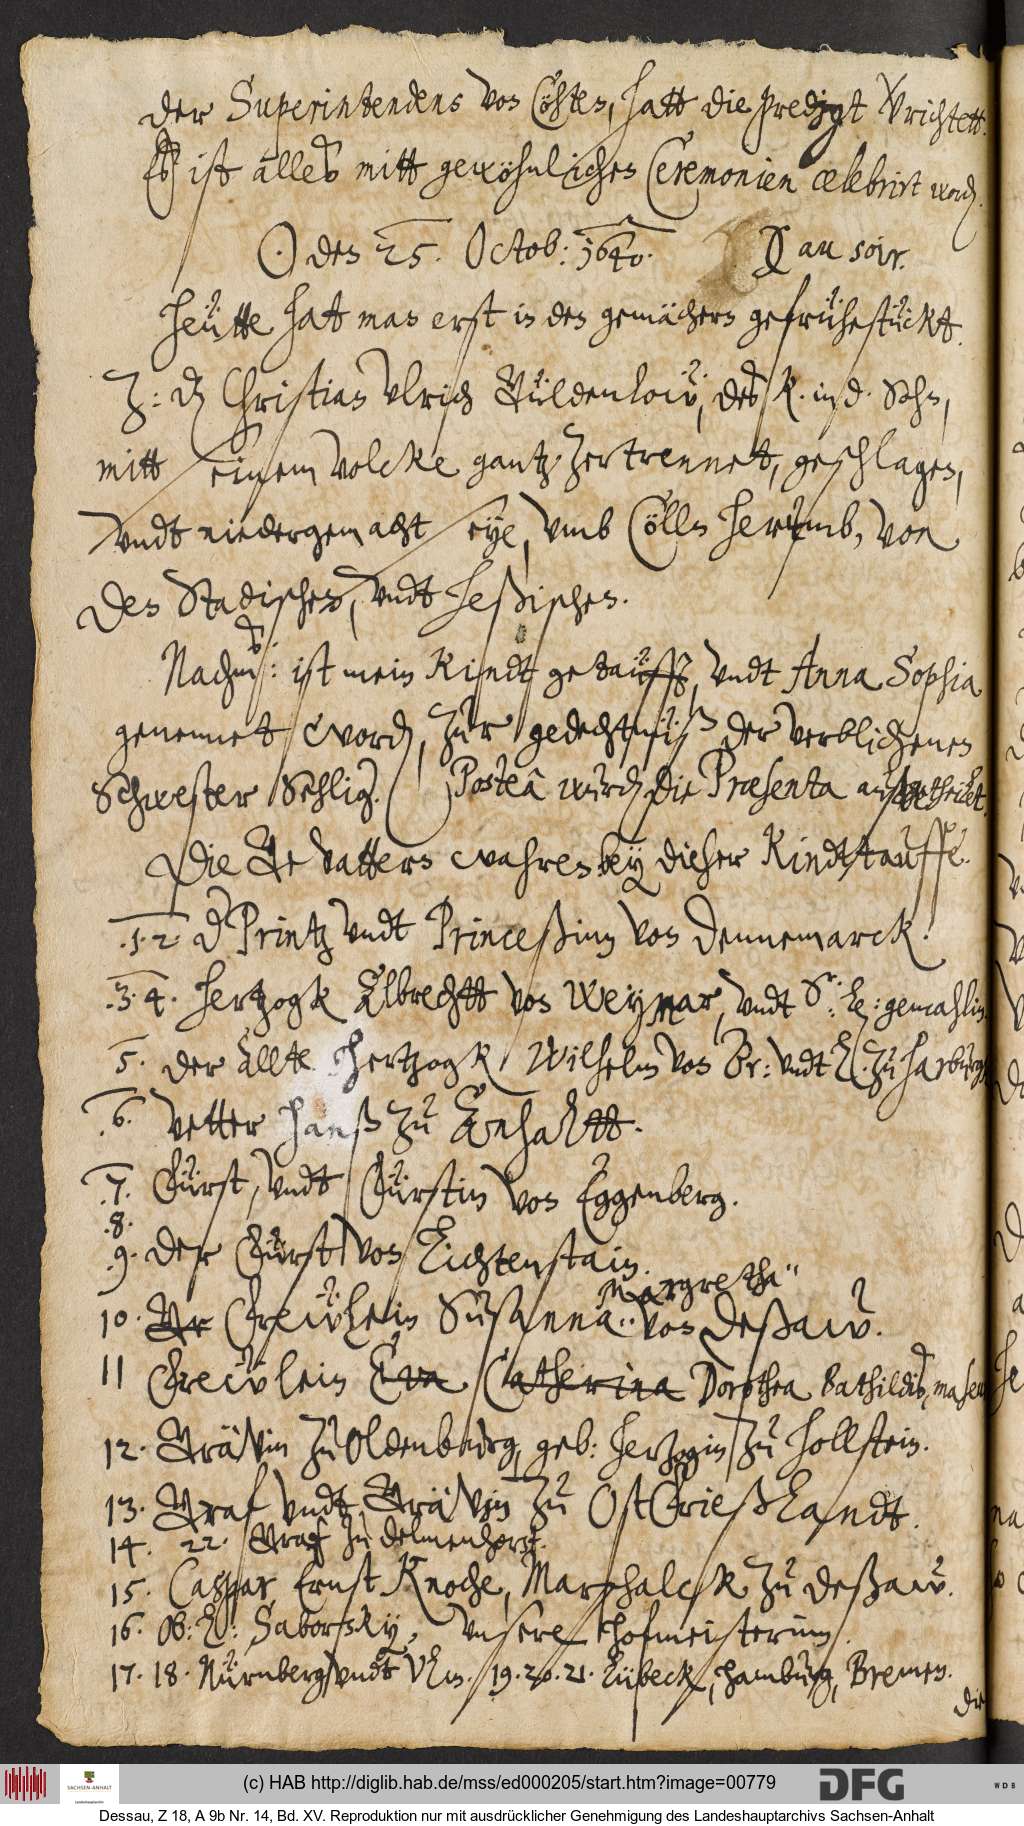 der Superintendens von Cöhten, hatt die predigt verrichtett.
Es ist alles mitt gewöhnlichen Ceremonien celebrirt word.
☉ den 25. Octob: 1640. au soir.
Heütte hat man erst in den gemächern gefrühestückt.
Z: Christian Ulrich Güldenlöw, des K. in d. Sohn,
mitt seinem volcke gantz zertrennet, geschlagen,
undt niedergemacht seye, umb Cölln herumb, von
den Stadischen, undt heßischen.
Nachm: ist mein Kindt getaufft, undt Anna Sophia
genennet word, zur gedechtnüß der verblichenen
Schwester Sehlig. Postea wurd die Præsenta außgetheilet.
Die Gevattern wahren bey dieser Kindtauffe.
.1. 2. d Printz undt Princeßinn von Dennemarck.
.3. 4. Hertzogk Albrechtt von Weymar, undt Sr: L: gemahlin.
5. der Ellte Hertzogk Wilhelm von Br: undt L. zu Harburg
.6. vetter Hanß zu Anhaltt.
.7. Fürst, undt Fürstin von Eggenberg.
.8.
.9. der Fürst von Lichtenstain.
Margretha
10. Gr Frewlein Susanna von Deßaw.
11 Frewlein Eva Catherina Dorothea Bathildis,
12. Grävin zu Oldenburg, geb: Hertzogin zu Hollstein.
13. Graf undt Grävin zu OstFrießlandt.
14. 22. Graf zu Delmenhorst.
15. Caspar Ernst Knoche, Marschalck zu Deßaw.
16. Ob: L: Saborsky, unsere Hofmeisterinn.
17. 18. Nürnberg undt Ulm. 19. 20. 21. Lübeck, Hamburg, Bremen.
die
(c) HAB http://diglib.hab.de/mss/ed000205/start.htm?image=00779
SACHSEN-ANHALT
DFG
WDB
Dessau, Z 18, A 9b Nr. 14, Bd. XV. Reproduktion nur mit ausdrücklicher Genehmigung des Landeshauptarchivs Sachsen-Anhalt